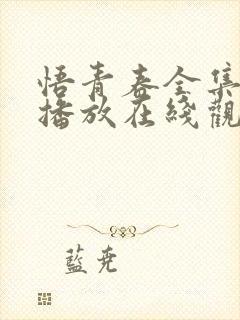 悟青春全集
播放在綫觀
藍堯